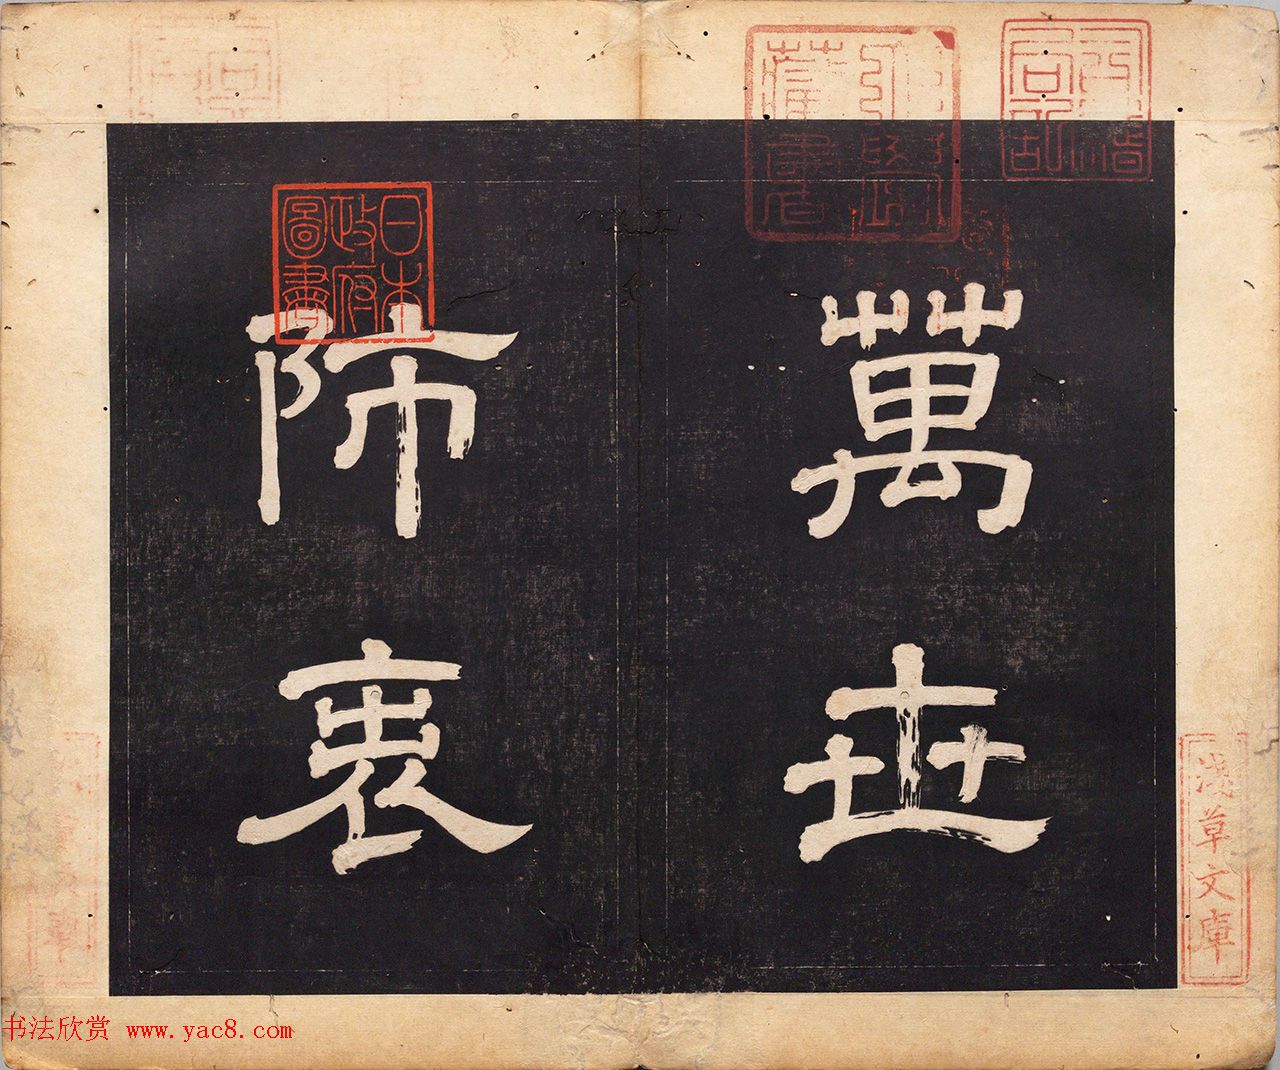 萬世
師表
日本政府圖書
淺草文庫
书法欣赏 www.yac8.com